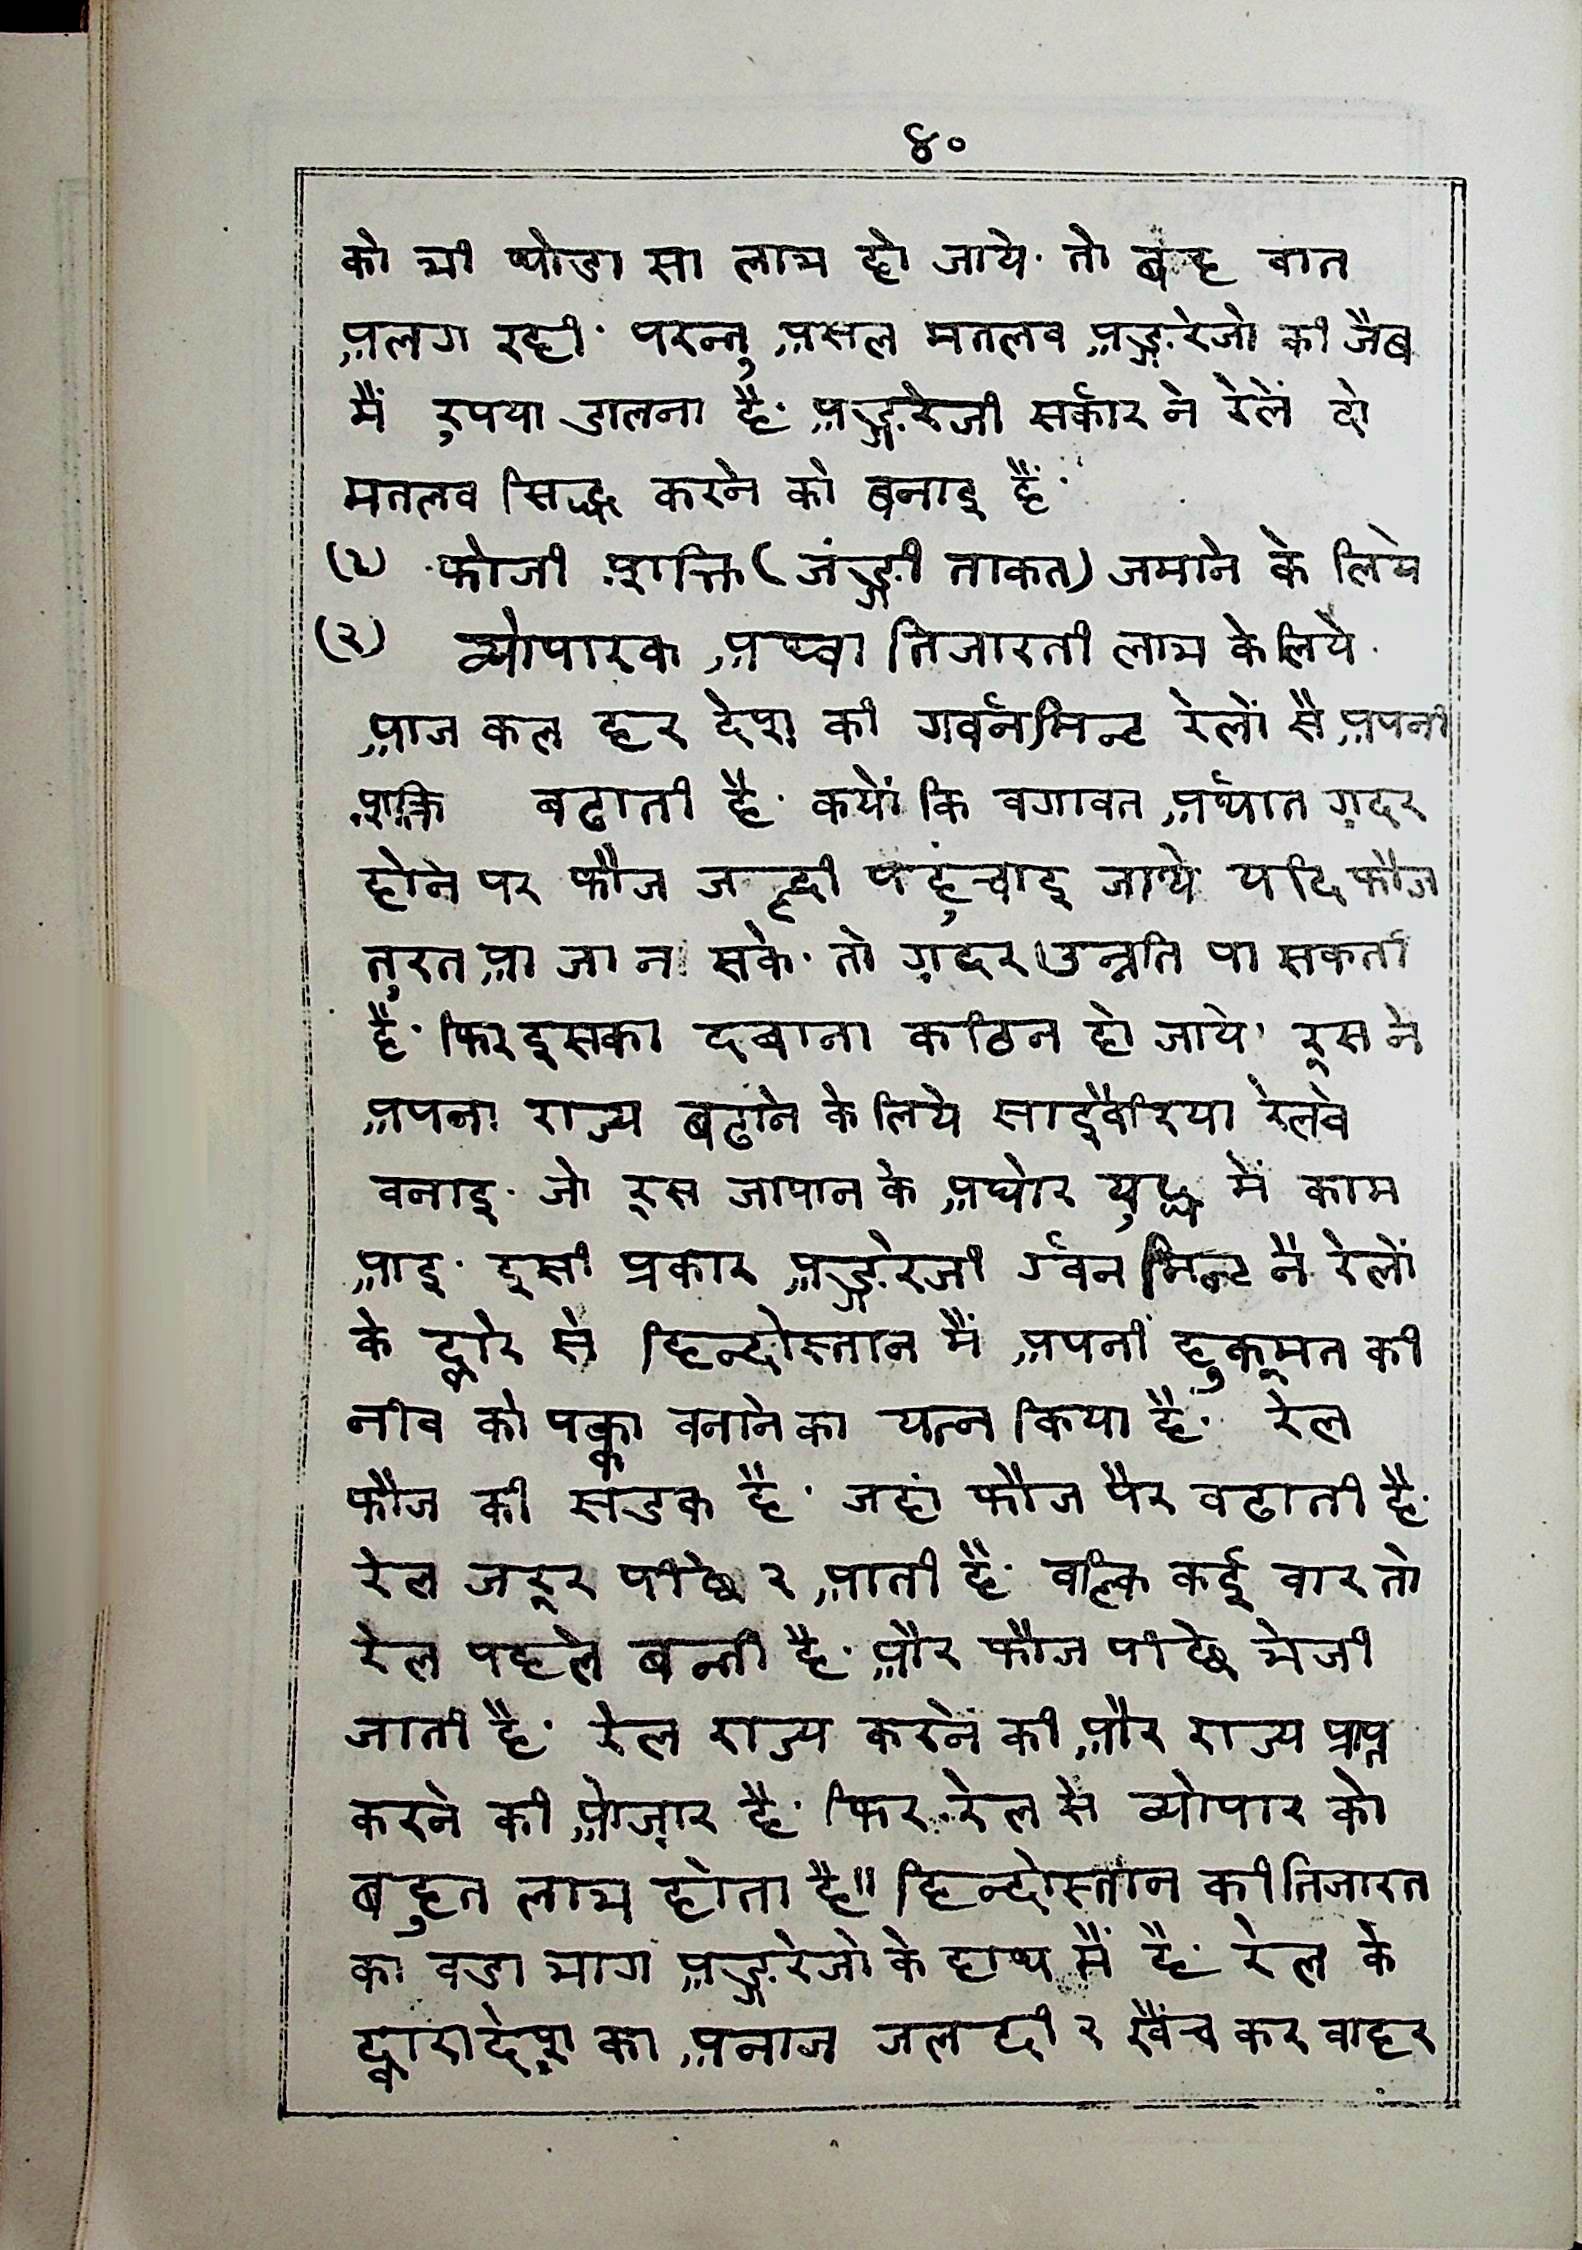 ४०
को भी थोडा सा लाभ हो जाये. तो बह वात
अलग रही. परन्तु असल मतलव अङ्गरेजो की जैब
मैं रुपया डालना है. अङ्गरेजी सर्कार ने रेलें दो
मतलव सिद्ध करने को बनाइ हैं.
(१) फोजी शक्ति (जंङ्गी ताकत) जमाने के लिये
(२) व्योपारक अथ्वा तिजारती लाभ के लिये.
आज कल हर देश की गर्वनमिन्ट रेलों सै अपनी
शक्ति बढाती है. कयों कि वगावत अर्थात ग़दर
होने पर फौज जल्दी पहुंचाइ जाये यदि फौज
तुरत आ जा न सके. तो ग़दर उन्नति पा सकती
है. फिर इसका दबाना कठिन हो जाये. रूस ने
अपना राज्य बढाने के लिये साईवैरिया रेलवे
वनाइ. जो रूस जापान के अघोर युद्ध में काम
आइ. इसी प्रकार अङ्गरेजी र्गवनमिन्ट नै रेलों
के द्वारे से हिन्दोस्तान मैं अपनीं हुकूमत की
नीव को पक्का वनाने का यत्न किया है. रेल
फौज की सडक है. जहां फौज पैर वढाती है.
रेल जरूर पीछे २ आती है. वल्कि कई वार तो
रेल पहले बन्ती है. और फौज पीछे भेजी
जाती है. रेल राज्य करनें की और राज्य प्राप्त
करने की ओज़ार है. फिर रेल से व्योपार को
बहुत लाभ होता है॥ हिन्दोस्तान की तिजारत
का वडा भाग अङ्गरेजो के हाथ मैं है. रेल के
द्वारा देश का अनाज जलदी २ खैंच कर वाहर